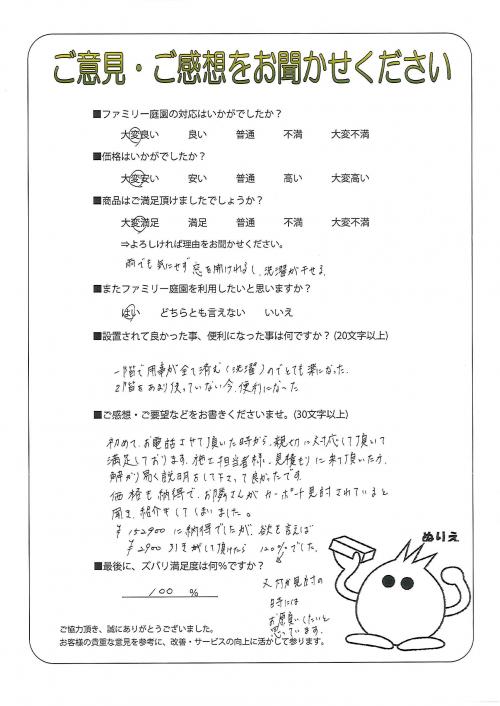 ご意見・ご感想をお聞かせください
■ファミリー庭園の対応はいかがでしたか？
大変良い　良い　普通　不満　大変不満
■価格はいかがでしたか？
大変安い　安い　普通　高い　大変高い
■商品はご満足頂けましたでしょうか？
大変満足　満足　普通　不満　大変不満
⇒よろしければ理由をお聞かせください。
雨でも気にせず窓を開けれるし、洗濯が干せる。
■またファミリー庭園を利用したいと思いますか？
はい　どちらとも言えない　いいえ
■設置されて良かった事、便利になった事は何ですか？（20文字以上）
一階で用事が全て済む（洗濯）のでとても楽になった。
2階をあまり使っていない今、便利になった
■ご感想・ご要望などをお書きくださいませ。（30文字以上）
初めて、お電話させて頂いた時から、親切に対応して頂いて
満足しております。施工担当者様、見積もりに来て頂いた方、
解かり易く説明をして下さって良かったです。
価格も納得で、お隣さんがカーポート見討されていると
聞き、紹介をしてしまいました。
¥152900に納得でしたが、欲を言えば
¥2900引きがして頂けたら120%でした。
■最後に、ズバリ満足度は何%ですか？
100　%
又何か見討の
時には
お願いしたいと
思っています。
ぬりえ
ご協力頂き、誠にありがとうございました。
お客様の貴重な意見を参考に、改善・サービスの向上に活かして参ります。